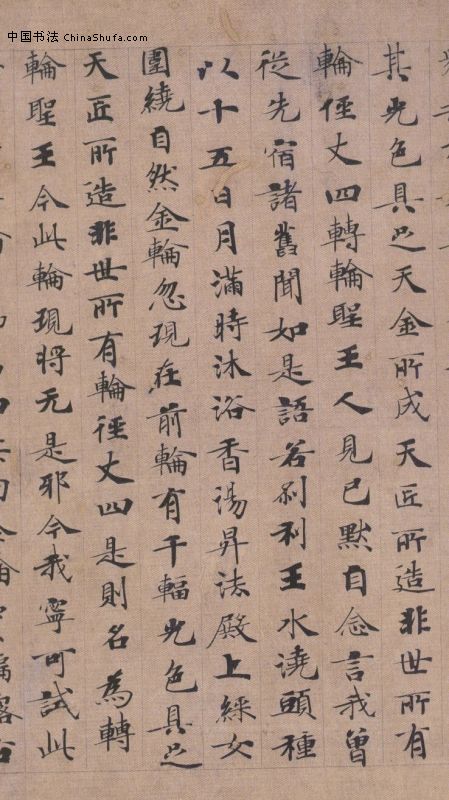 中国书法 ChinaShufa.com
其光色具足天金所成天匠所造非世所有
輪俓丈四轉輪聖王人見已默自念言我曾
從先宿諸舊聞如是語若刹利王水澆頭種
以十五日月滿時沐浴香湯昇法殿上綵女
圍繞自然金輪忽現在前輪有千輻光色具足
天匠所造非世所有輪徑丈四是則名為轉
輪聖王今此輪現將无是邪今我寧可試此